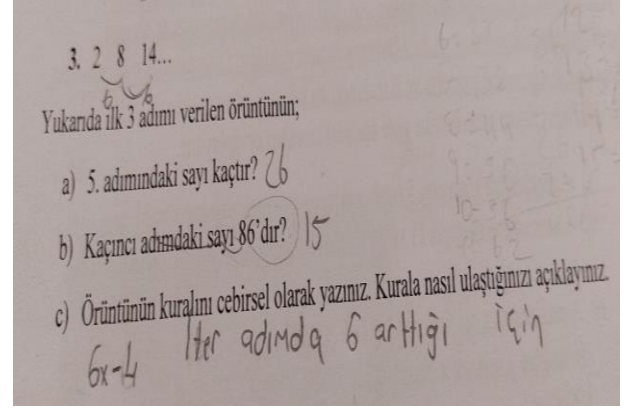 3. 2 8 14...
6 6
Yukarıda ilk 3 adımı verilen örüntünün;
a) 5. adımındaki sayı kaçtır? 26
b) Kaçıncı adımdaki sayı 86'dır? 15
c) Örüntünün kuralını cebirsel olarak yazınız. Kurala nasıl ulaştığınızı açıklayınız.
6x-4 Her adımda 6 arttığı için